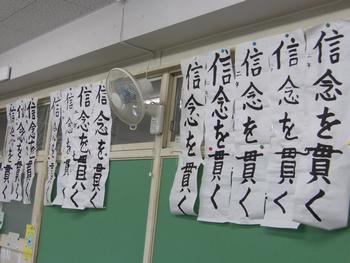 信念を貫く
信念を貫く
信念を貫く
信念を貫く
信念を貫く
信念を貫く
信念を貫く
信念を貫く
信念を貫く
信念を貫く
信念を貫く
信念を貫く